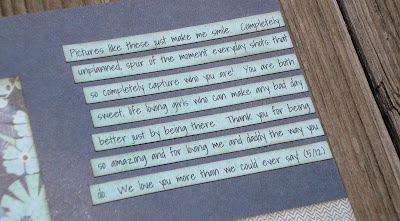 Pictures like these just make me smile. Completely
unplanned, spur of the moment everyday shots that
so completely capture who you are! You are both
sweet, life loving girls who can make any bad day
better just by being there. Thank you for being
so amazing and for loving me and daddy the way you
do. We love you more than we could ever say. (5/12)